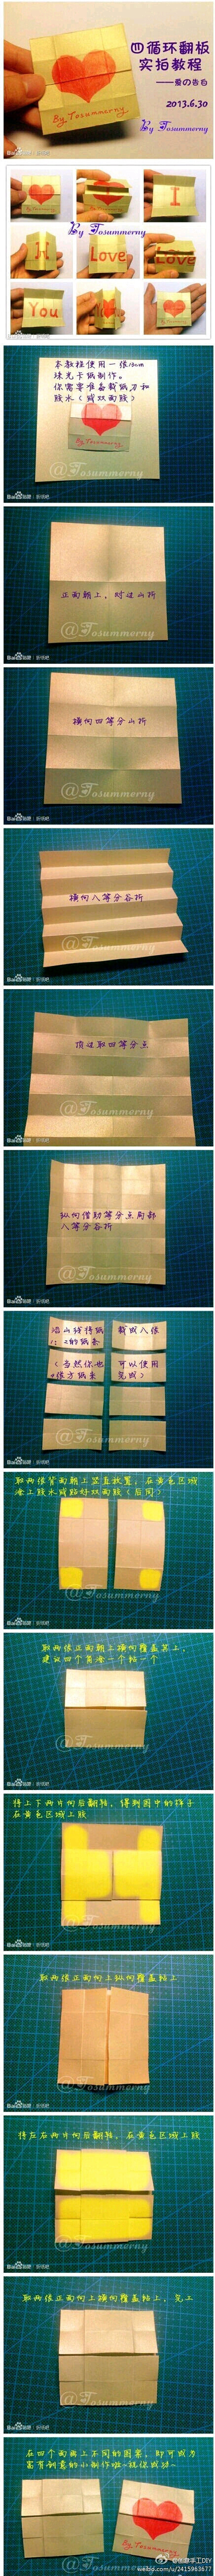 四循环翻板
实拍教程
——爱の告白
2013.6.30
By Tosummerny
By Tosummerny
By Tosummerny
I
Love
Love
You
本教程使用一张10cm
珠光卡纸制作。
你需要准备裁纸刀和
胶水（或双面胶）
By Tosummerny
@Tosummerny
正面朝上，对边山折
@Tosummerny
横向四等分山折
@Tosummerny
横向八等分谷折
@Tosummerny
顶边取四等分点
@Tosummerny
纵向借助等分点局部
八等分谷折
@Tosummerny
沿山线将纸
裁成八张
的纸条
（当然你也
可以使用
张方纸来
完成）
@Tosummerny
取两张背面朝上竖直放置，在黄色区域
涂上胶水或贴好双面胶（后同）
@Tosummerny
取两张正面朝上横向覆盖其上，
建议四个角涂一个粘一个
@Tosummerny
将上下两片向后翻转，得到图中的样子
在黄色区域上胶
@Tosummerny
取两张正面向上纵向覆盖粘上
@Tosummerny
将左右两片向后翻转，在黄色区域上胶
@Tosummerny
取两张正面向上横向覆盖粘上，完工
@Tosummerny
在四个面画上不同的图案，即可成为
富有创意的小制作啦~祝你成功~
By Tosummerny
@创意手工DIY
weibo.com/u/2415963677